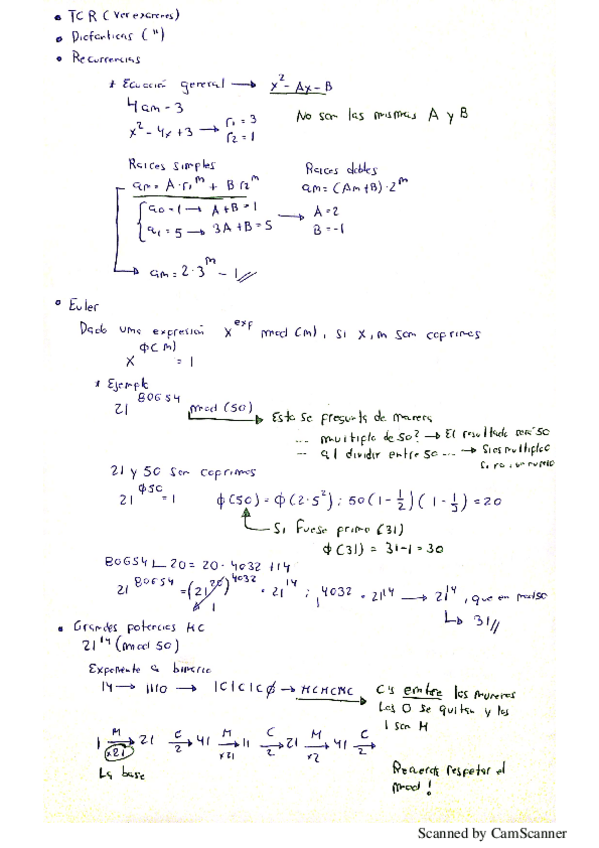 • TCR (Ver exámenes)
• Diofánticas (")
• Recurrencias
* Ecuación general → x² - Ax - B
4am - 3
No son las mismas A y B
x² - 4x + 3 → r₁ = 3
r₂ = 1
Raíces simples
Raíces dobles
am = A·r₁^m + B r₂^m
am = (Am + B)·2^m
a₀ = 1 → A + B = 1
a₁ = 5 → 3A + B = 5
→ A = 2
B = -1
→ am = 2·3^m - 1//
• Euler
Dado una expresión x^exp mod (m), si x, m son coprimos
x^ϕ(m) = 1
* Ejemplo
21^80654 mod (50)
→ Esto se pregunta de manera
... multiplo de 50? → El resultado será 50
... al dividir entre 50 ... →
21 y 50 son coprimos
21^ϕ50 = 1 ϕ(50) = ϕ(2·5²) ; 50(1 - 1/2)(1 - 1/5) = 20
Si fuese primo (31)
ϕ(31) = 31-1 = 30
80654 ∟ 20 = 20·4032 + 14
21^80654 = (21^20)^4032 · 21^14 ; 1^4032 · 21^14 → 21^14, que en mod 50
1
↳ 31//
• Grandes potencias MC
21^14 (mod 50)
Exponente a binario
14 → 1110 → 1C1C1C∅ → MCMCMC
C's entre los números
Los 0 se quitan y los
1 son M
1 M→ x21 21 C→ 2 41 M→ x21 11 C→ 2 21 M→ x2 41 C→
La base
Recuerda respetar el
mod!
Scanned by CamScanner